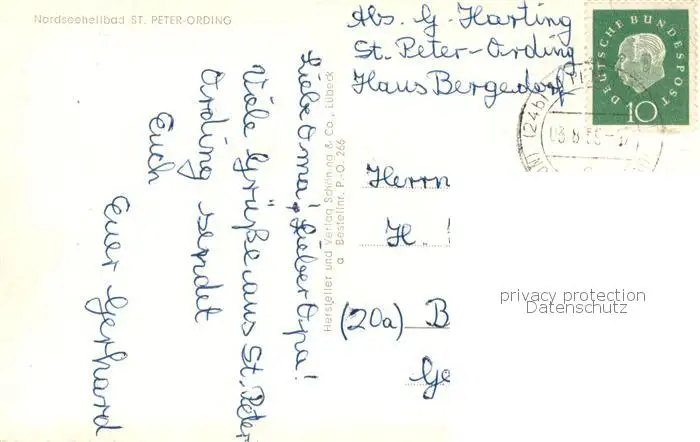 Nordseeheilbad ST. PETER-ORDING
Abs. G. Harting
St. Peter-Ording
Haus Bergedorf
DEUTSCHE BUNDESPOST
10
(24b)
Liebe Oma! Lieber Opa!
Viele Grüße aus St. Peter
Ording sendet
Euch
Euer Gerhard
Hersteller und Verlag Schöning & Co., Lübeck
a Bestellnr. P.-O. 266
Herrn
H.
(20a) B
Ge
privacy protection
Datenschutz